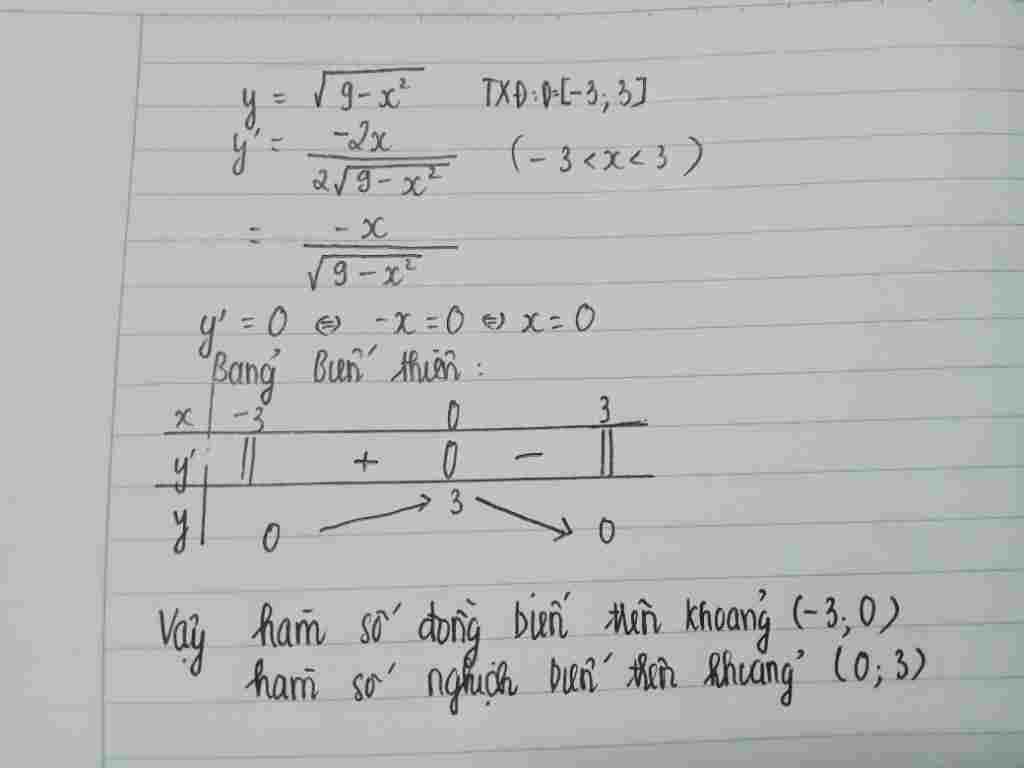 y = √(9-x²) TXĐ: D=[-3; 3]
y' = -2x / (2√(9-x²)) (-3<x<3)
= -x / √(9-x²)
y' = 0 ⇔ -x = 0 ⇔ x = 0
Bảng biến thiên :
x -3 0 3
y' || + 0 - ||
y 0 ↗ 3 ↘ 0
Vậy hàm số đồng biến trên khoảng (-3; 0)
hàm số nghịch biến trên khoảng (0; 3)